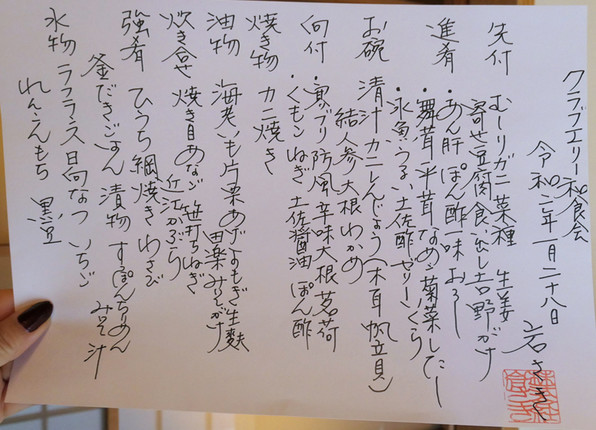 クラブエリー和食会
令和二年一月二十八日
岩さき
先付 むしりガニ 菜種 生姜
寄せ豆腐 食い出し 吉野がけ
進肴 ・あん肝 ぽん酢 一味おろし
・舞茸 平茸 なめこ 菊菜したし
・氷魚 うるい 土佐酢ゼリー いくら
お椀 清汁 カニしんじょう(木耳 帆立貝)
結人参 大根 わかめ
向付 ・寒ブリ 防風 辛味大根 茗荷
・くもこ ねぎ 土佐醤油 ぽん酢
焼き物 カニ焼き
油物 海老いも片栗あげ よもぎ生麩
田楽みそがけ
炊き合せ 焼き目あなご 笹打ちねぎ
近江かぶら
強肴 ひうち網焼き わさび
釜だきごはん 漬物 すっぽん ちりめん
みそ汁
水物 ラフランス 日向なつ いちご
れんこんもち 黒豆